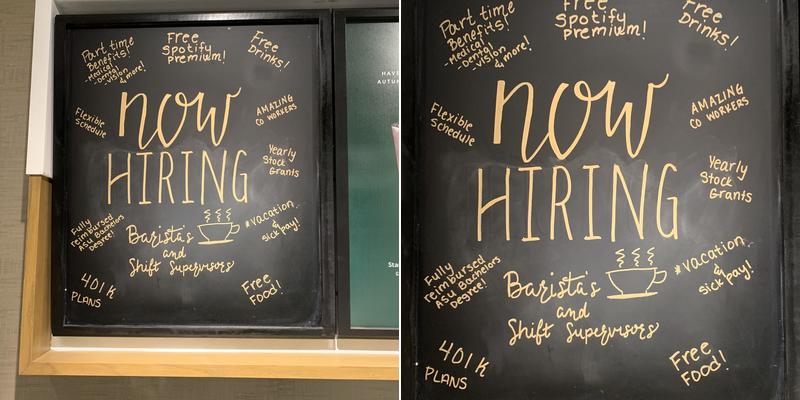 Part time
Benefits!
-Medical
-Dental
-Vision
& more!
Free
Spotify
Premium!
Free
Drinks!
now
HIRING
Flexible
Schedule
AMAZING
CO WORKERS
Yearly
Stock
Grants
Fully
reimbursed
ASU Bachelors
Degree!
Barista's
and
Shift Supervisors
*vacation
&
sick pay!
401K
PLANS
Free
Food!
HAVE
AUTUM
Free
Spotify
Premium!
Part time
Benefits!
-Medical
-Dental
-Vision
& more!
Free
Drinks!
now
HIRING
Flexible
Schedule
AMAZING
CO WORKERS
Yearly
Stock
Grants
Fully
reimbursed
ASU Bachelors
Degree!
Barista's
and
Shift Supervisors
*vacation
&
sick pay!
401K
PLANS
Free
Food!